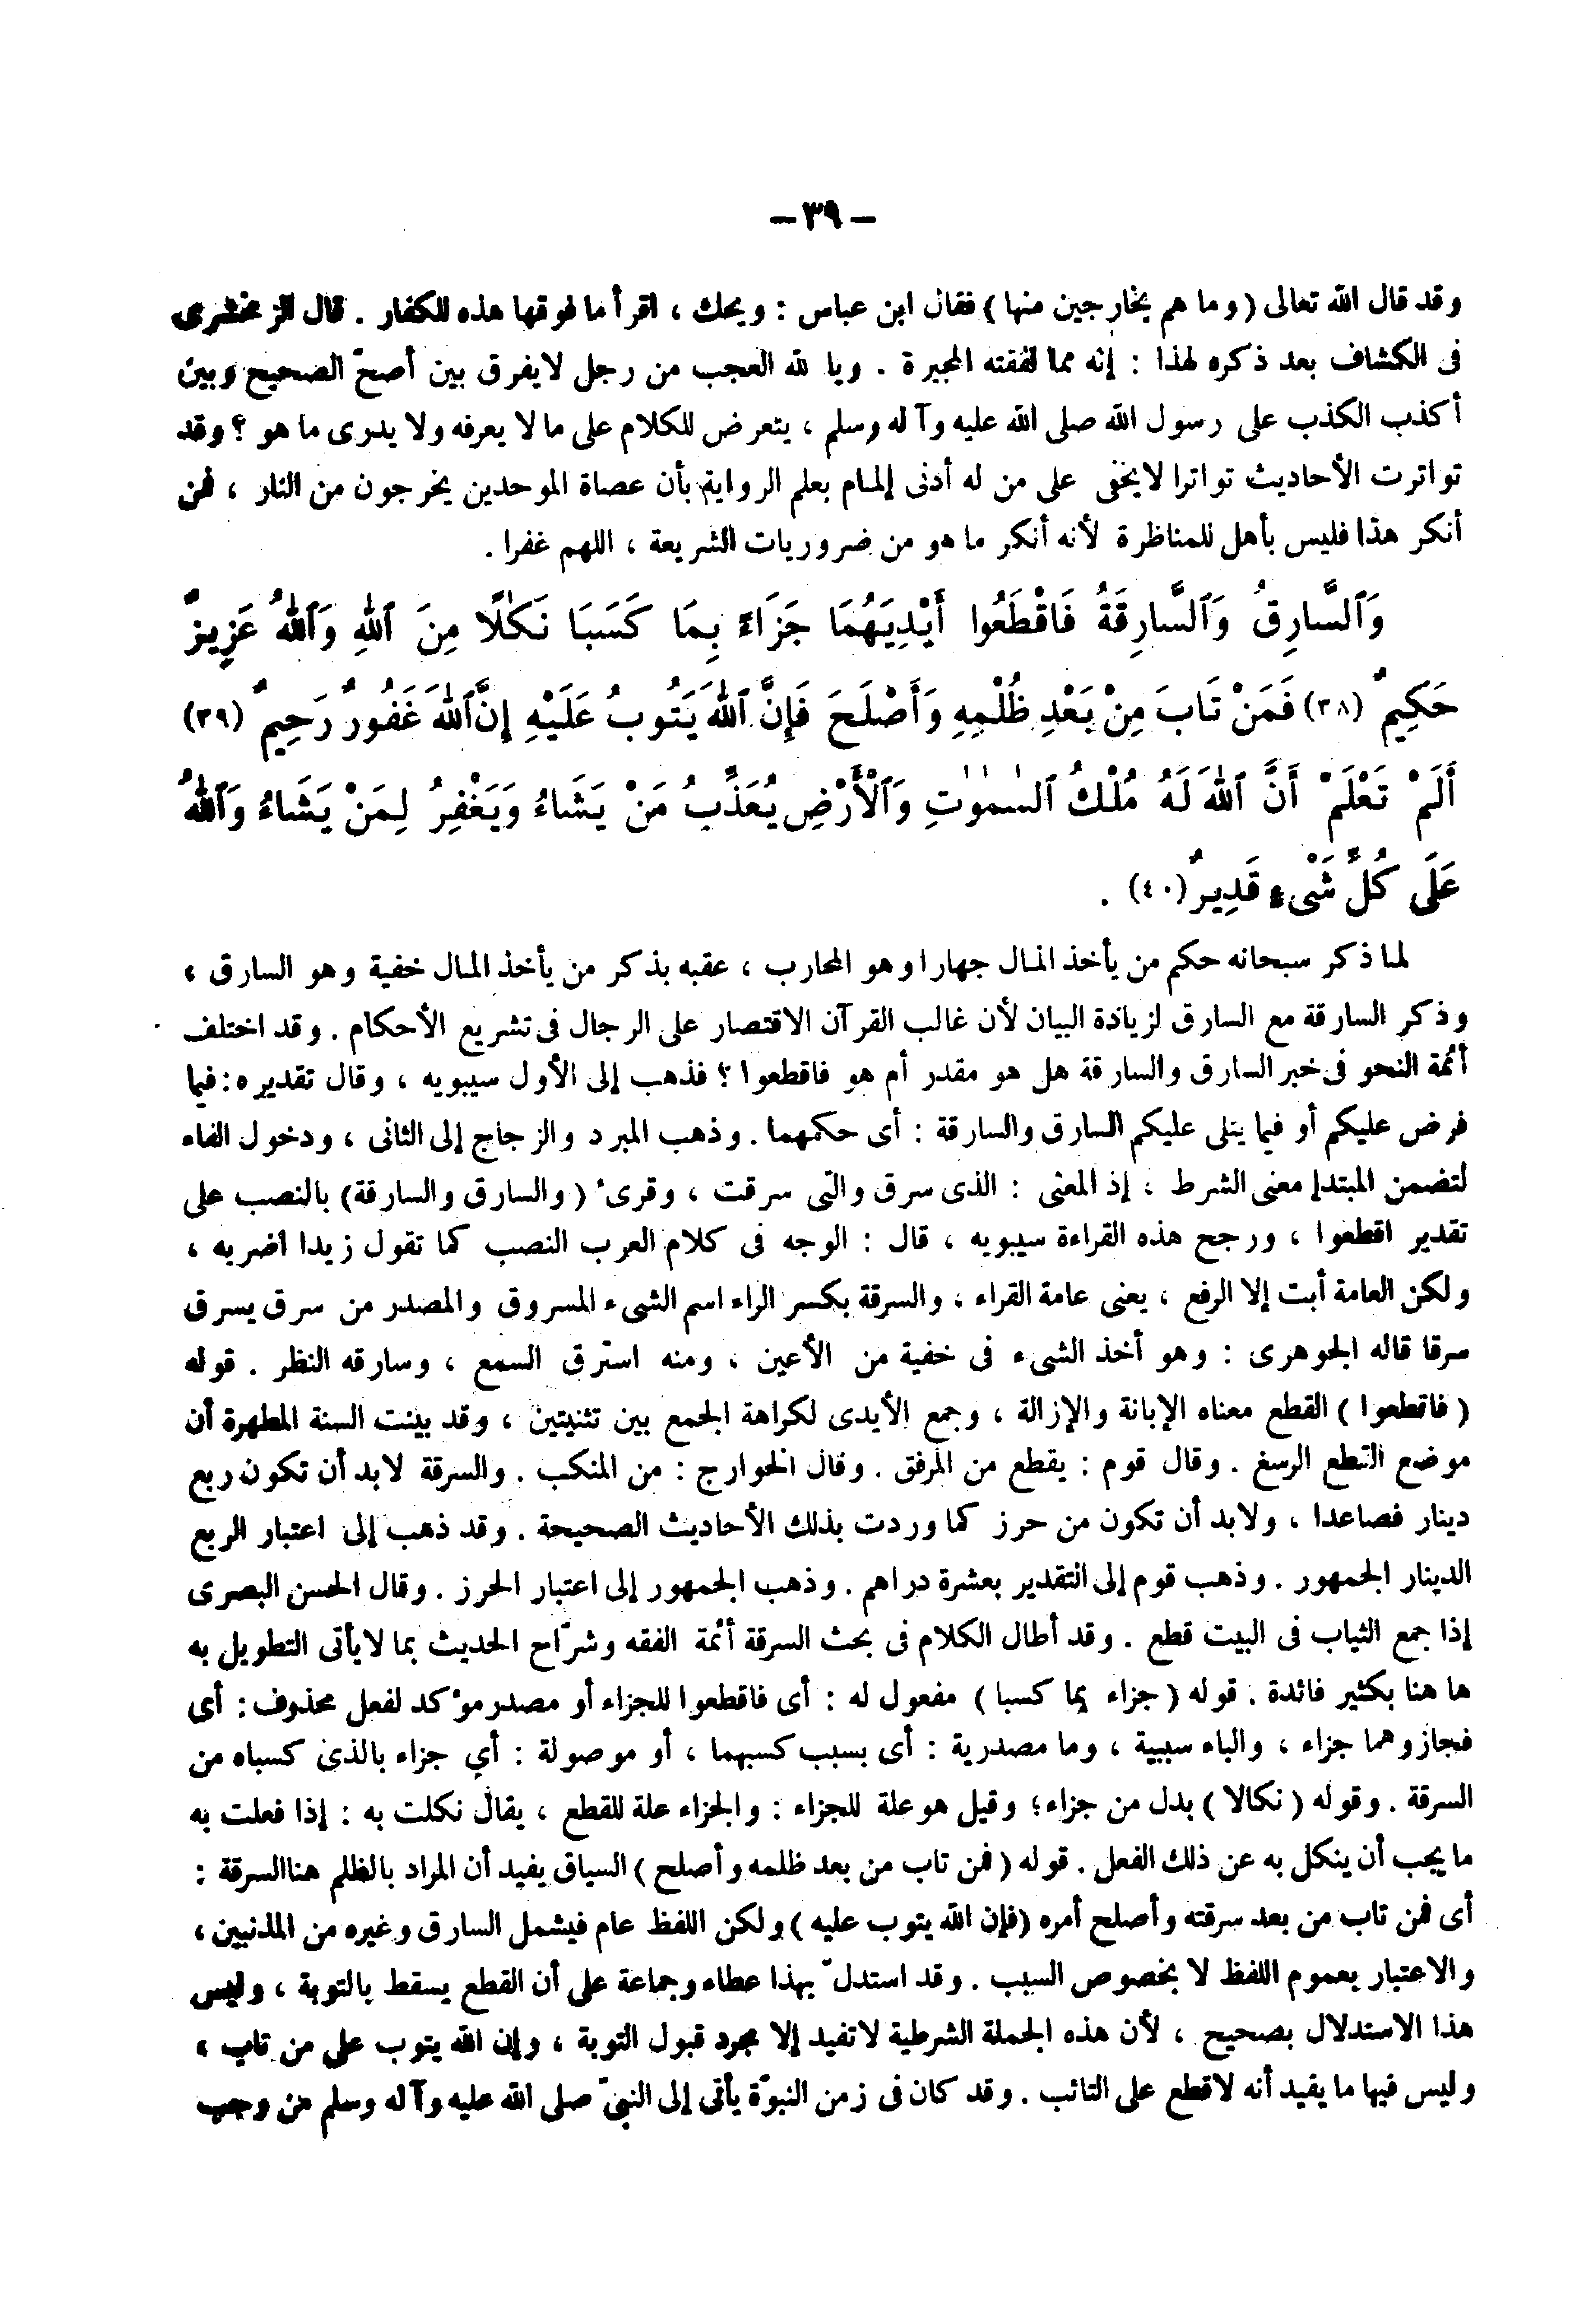 – ٣٩ –
وقد قال الله تعالى (وما هم بخارجين منها) فقال ابن عباس : ويحك ، اقرأ ما فوقها هذه للكفار . قال الزمخشرى
فى الكشاف بعد ذكره لهذا : إنه مما لفقته المجبرة . ويا لله العجب من رجل لا يفرق بين أصحّ الصحيح وبين
أكذب الكذب على رسول الله صلى الله عليه وآله وسلم ، يتعرض للكلام على ما لا يعرفه ولا يدرى ما هو ؟ وقد
تواترت الأحاديث تواترا لا يخفى على من له أدنى إلمام بعلم الرواية بأن عصاة الموحدين يخرجون من النار ، فمن
أنكر هذا فليس بأهل للمناظرة لأنه أنكر ما هو من ضروريات الشريعة ، اللهم غفرا .
وَٱلسَّارِقُ وَٱلسَّارِقَةُ فَاقْطَعُوا أَيْدِيَهُمَا جَزَاءً بِمَا كَسَبَا نَكَٰلًا مِنَ ٱللهِ وَٱللهُ عَزِيزٌ
حَكِيمٌ (٣٨) فَمَنْ تَابَ مِنْ بَعْدِ ظُلْمِهِ وَأَصْلَحَ فَإِنَّ ٱللهَ يَتُوبُ عَلَيْهِ إِنَّ ٱللهَ غَفُورٌ رَحِيمٌ (٣٩)
أَلَمْ تَعْلَمْ أَنَّ ٱللهَ لَهُ مُلْكُ ٱلسمٰوٰتِ وَٱلْأَرْضِ يُعَذِّبُ مَنْ يَشَاءُ وَيَغْفِرُ لِمَنْ يَشَاءُ وَٱللهُ
عَلَى كُلِّ شَىْءٍ قَدِيرٌ (٤٠) .
لما ذكر سبحانه حكم من يأخذ المال جهارا وهو المحارب ، عقبه بذكر من يأخذ المال خفية وهو السارق ،
وذكر السارقة مع السارق لزيادة البيان لأن غالب القرآن الاقتصار على الرجال فى تشريع الأحكام . وقد اختلف
أئمة النحو فى خبر السارق والسارقة هل هو مقدر أم هو فاقطعوا ؟ فذهب إلى الأول سيبويه ، وقال تقديره : فيما
فرض عليكم أو فيما يتلى عليكم السارق والسارقة : أى حكمهما . وذهب المبرد والزجاج إلى الثانى ، ودخول الفاء
لتضمن المبتدإ معنى الشرط ، إذ المعنى : الذى سرق والتى سرقت ، وقرئ (والسارق والسارقة) بالنصب على
تقدير اقطعوا ، ورجح هذه القراءة سيبويه ، قال : الوجه فى كلام العرب النصب كما تقول زيدا اضربه ،
ولكن العامة أبت إلا الرفع ، يعنى عامة القراء ، والسرقة بكسر الراء اسم الشىء المسروق والمصدر من سرق يسرق
سرقا قاله الجوهرى : وهو أخذ الشىء فى خفية من الأعين ، ومنه استرق السمع ، وسارقه النظر . قوله
( فاقطعوا ) القطع معناه الإبانة والإزالة ، وجمع الأيدى لكراهة الجمع بين تثنيتين ، وقد بينت السنة المطهرة أن
موضع القطع الرسغ . وقال قوم : يقطع من المرفق . وقال الخوارج : من المنكب . والسرقة لابد أن تكون ربع
دينار فصاعدا ، ولابد أن تكون من حرز كما وردت بذلك الأحاديث الصحيحة . وقد ذهب إلى اعتبار الربع
الدينار الجمهور . وذهب قوم إلى التقدير بعشرة دراهم . وذهب الجمهور إلى اعتبار الحرز . وقال الحسن البصرى
إذا جمع الثياب فى البيت قطع . وقد أطال الكلام فى بحث السرقة أئمة الفقه وشرّاح الحديث بما لا يأتى التطويل به
ها هنا بكثير فائدة . قوله (جزاء بما كسبا) مفعول له : أى فاقطعوا للجزاء أو مصدر مؤكد لفعل محذوف : أى
فجازوهما جزاء ، والباء سببية ، وما مصدرية : أى بسبب كسبهما ، أو موصولة : أى جزاء بالذى كسباه من
السرقة . وقوله ( نكالا ) بدل من جزاء ؛ وقيل هو علة للجزاء : والجزاء علة للقطع ، يقال نكلت به : إذا فعلت به
ما يجب أن ينكل به عن ذلك الفعل . قوله ( فمن تاب من بعد ظلمه وأصلح ) السياق يفيد أن المراد بالظلم هنا السرقة :
أى فمن تاب من بعد سرقته وأصلح أمره (فإن الله يتوب عليه ) ولكن اللفظ عام فيشمل السارق وغيره من المذنبين ،
والاعتبار بعموم اللفظ لا بخصوص السبب . وقد استدلّ بهذا عطاء وجماعة على أن القطع يسقط بالتوبة ، وليس
هذا الاستدلال بصحيح ، لأن هذه الجملة الشرطية لا تفيد إلا مجرد قبول التوبة ، وإن الله يتوب على من تاب ،
وليس فيها ما يفيد أنه لا قطع على التائب . وقد كان فى زمن النبوّة يأتى إلى النبىّ صلى الله عليه وآله وسلم من وجب